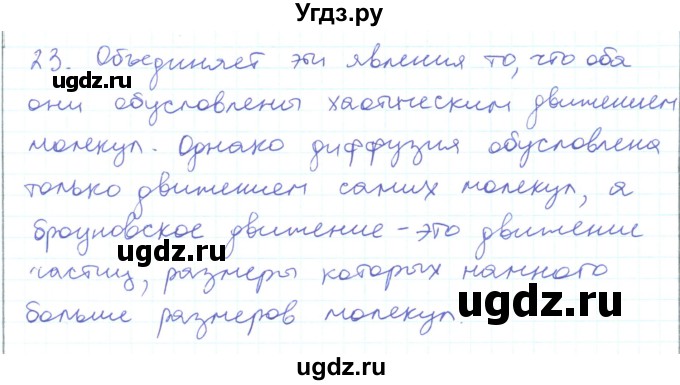 Угдз.ру
23. Объединяет эти явления то, что оба
они обусловлены хаотическим движением
молекул. Однако диффузия обусловлена
только движением самих молекул, а
броуновское движение - это движение
частиц, размеры которых намного
больше размеров молекул.
ugdz.ru
ugdz.ru
ugdz.ru
ugdz.ru
ugdz.ru
ugdz.ru
ugdz.ru
ugdz.ru
ugdz.ru